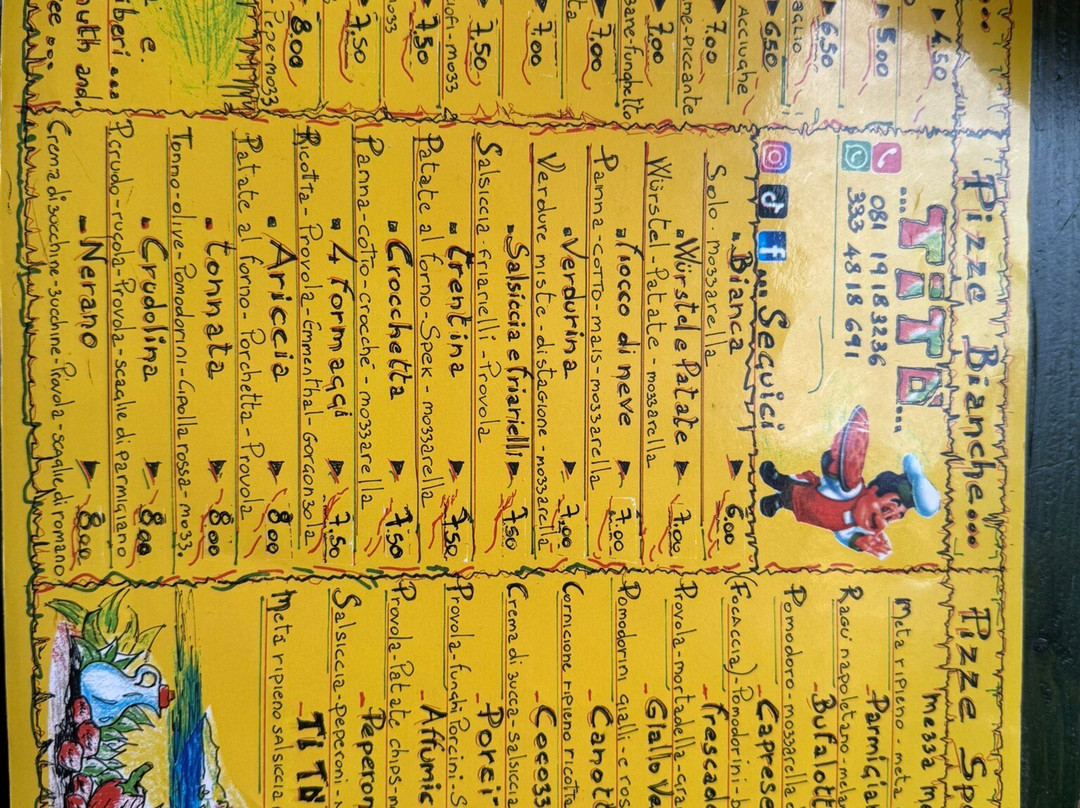 4.50
5.00
6.50
AGLIO
6.50
ACCIUGHE
7.00
me-piccante
7.00
zane-funghetto
7.00
ta
7.00
7.50
iofi-mozz
7.50
mozz
7.50
8.00
Pepe-mozz
e
iberi...
outh and
ee ...
Pizze Bianche...
...TITO...
081 1918 3236
333 4818 691
Seguici
Bianca 6.00
Solo mozzarella
Würstel e Patate 7.00
Würstel-Patate-mozzarella
fiocco di neve 7.00
Panna-cotto-mais-mozzarella
Verdurina 7.00
Verdure miste-di stagione-mozzarella
Salsiccia e friarielli 7.50
Salsiccia-friarielli-Provola
Trentina 7.50
Patate al forno-Spek-mozzarella
Crocchetta 7.50
Panna-cotto-crocché-mozzarella
4 formaggi 7.50
Ricotta-Provola-Emmenthal-Gorgonzola
Ariccia 8.00
Patate al forno-Porchetta-Provola
tonnata 8.00
Tonno-olive-Pomodorini-Cipolla rossa-mozz.
Crudolina 8.00
Pcrudo-rucola-Provola-scaglie di parmigiano
Nerano 8.00
Crema di zucchine-zucchine-Provola-scaglie di romano
Pizze Sp
mezza m
metà ripieno-metà
Parmigia
Ragù napoletano-mel
Bufalott
Pomodoro-mozzarella d
Caprese
(Focaccia)-Pomodorini-b
frescad
Provola-mortadella-gra
Giallo Ve
Pomodorini gialli-e ros
Canott
Cornicione ripieno ricotta
Cocozz
Crema di zucca-salsiccia
Porci
Provola-funghi Porcini-S
Affumic
Provola-Patate chips-m
Peperon
Salsiccia-Peperoni-
TITO
metà ripieno salsicci